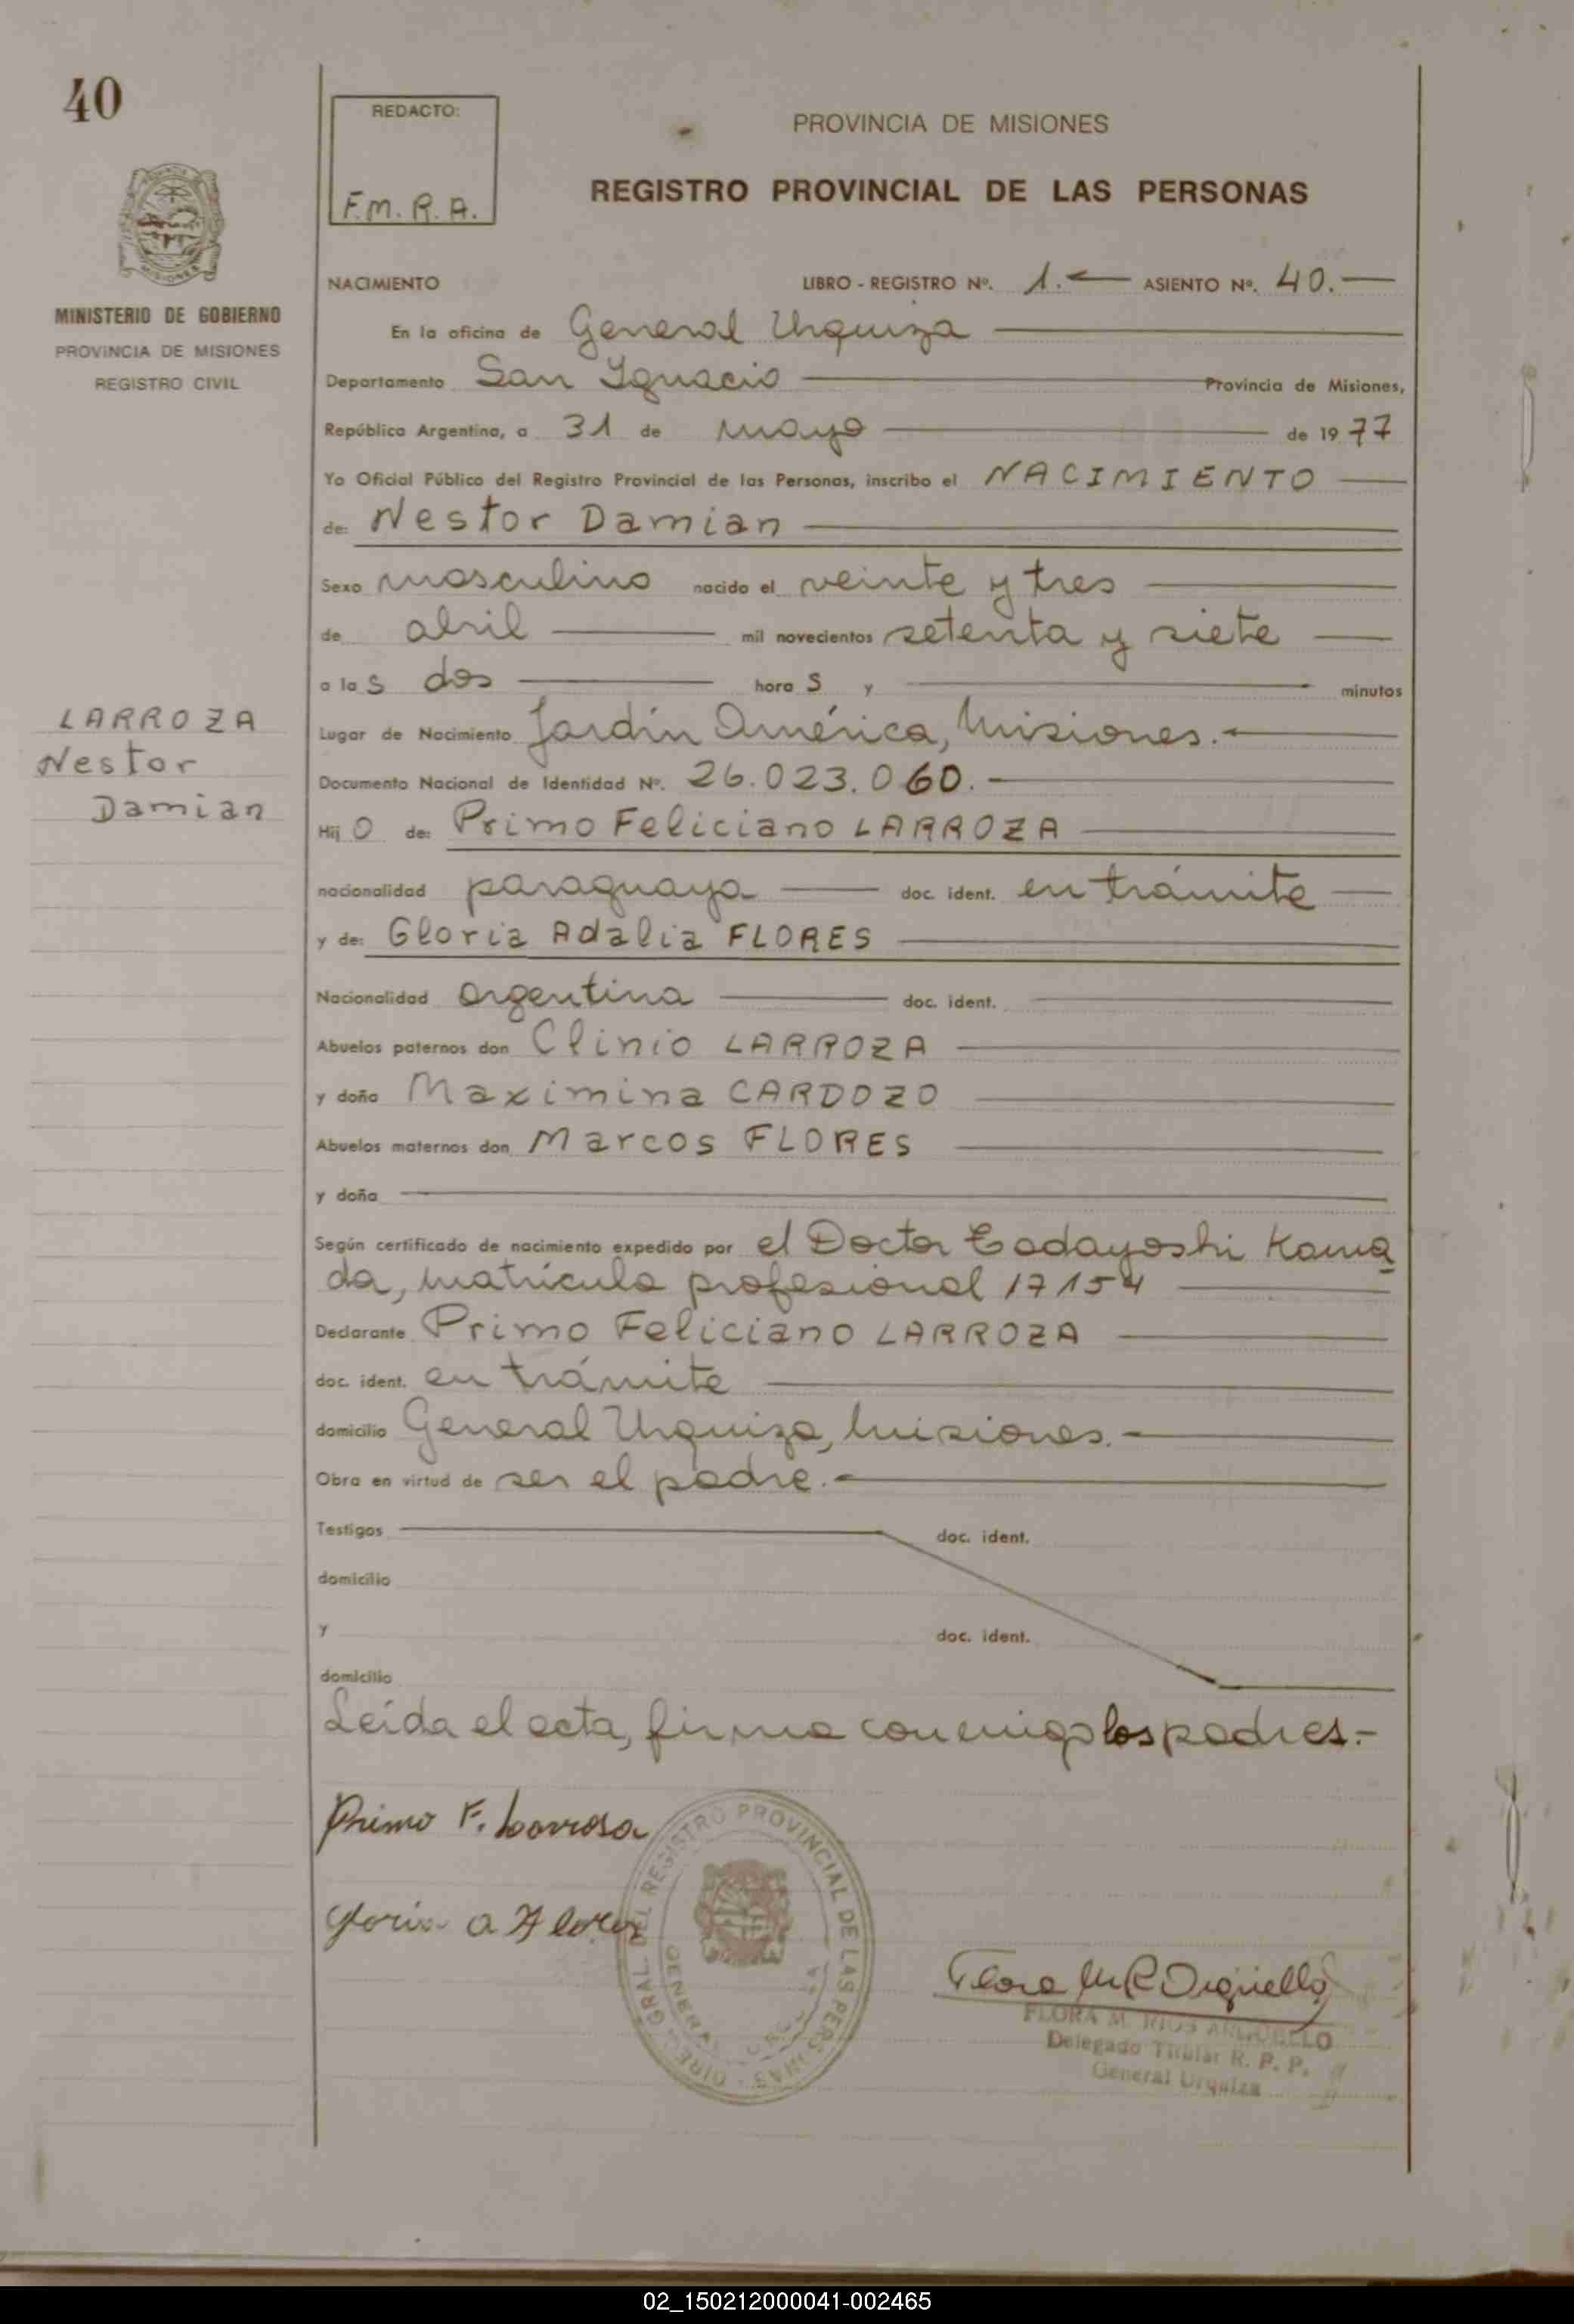 40
REDACTO:
F.M.R.A.
PROVINCIA DE MISIONES
REGISTRO PROVINCIAL DE LAS PERSONAS
MINISTERIO DE GOBIERNO
PROVINCIA DE MISIONES
REGISTRO CIVIL
LARROZA
Nestor
Damian
NACIMIENTO LIBRO - REGISTRO Nº. 1.- ASIENTO Nº. 40.-
En la oficina de General Urquiza
Departamento San Ignacio Provincia de Misiones,
República Argentina, a 31 de mayo de 1977
Yo Oficial Público del Registro Provincial de las Personas, inscribo el NACIMIENTO
de: Nestor Damian
Sexo masculino nacido el veinte y tres
de abril mil novecientos setenta y siete
a las dos horas y minutos
Lugar de Nacimiento Jardín América, Misiones.-
Documento Nacional de Identidad Nº. 26.023.060.-
Hijo de: Primo Feliciano LARROZA
nacionalidad paraguaya doc. ident. en trámite
y de: Gloria Adalia FLORES
Nacionalidad argentina doc. ident.
Abuelos paternos don Clinio LARROZA
y doña Maximina CARDOZO
Abuelos maternos don Marcos FLORES
y doña
Según certificado de nacimiento expedido por el Doctor Tadayoshi Kama
da, matrícula profesional 17154
Declarante Primo Feliciano LARROZA
doc. ident. en trámite
domicilio General Urquiza, Misiones.-
Obra en virtud de ser el padre.-
Testigos doc. ident.
domicilio
y doc. ident.
domicilio
Leída el acta, firma conmigo los padres.-
Primo F. Larrosa
Gloria A Flores
DIRE. GRAL. DEL REGISTRO PROVINCIAL DE LAS PERSONAS
GENERAL URQUIZA
Flora M R Argüello
FLORA M. RIOS ARGUELLO
Delegado Titular R. P. P.
General Urquiza
02_150212000041-002465